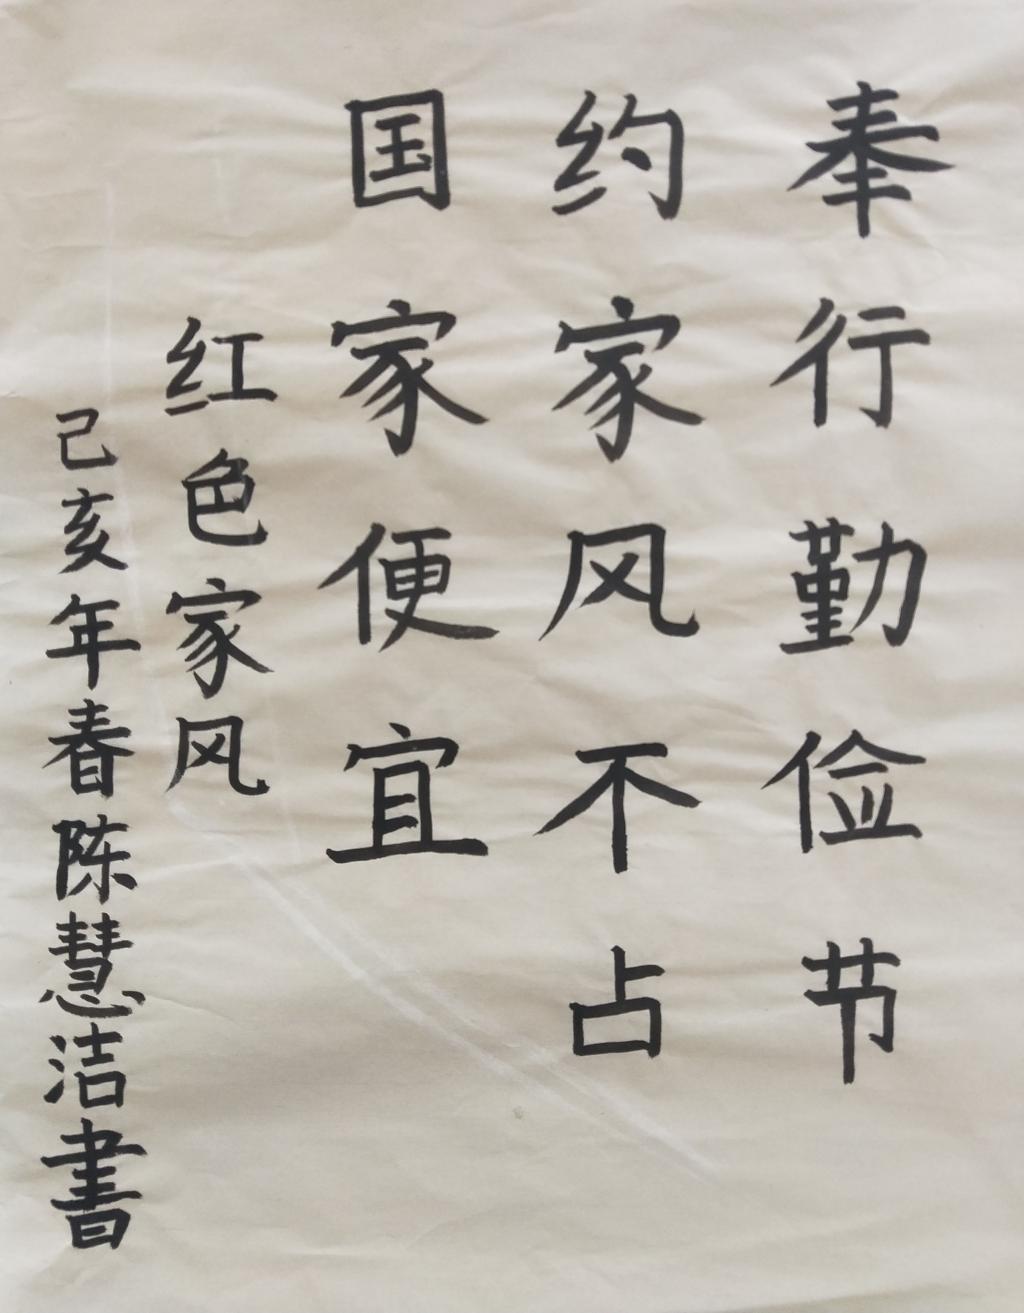 奉行勤俭节
约家风不占
国家便宜
红色家风
己亥年春陈慧洁書